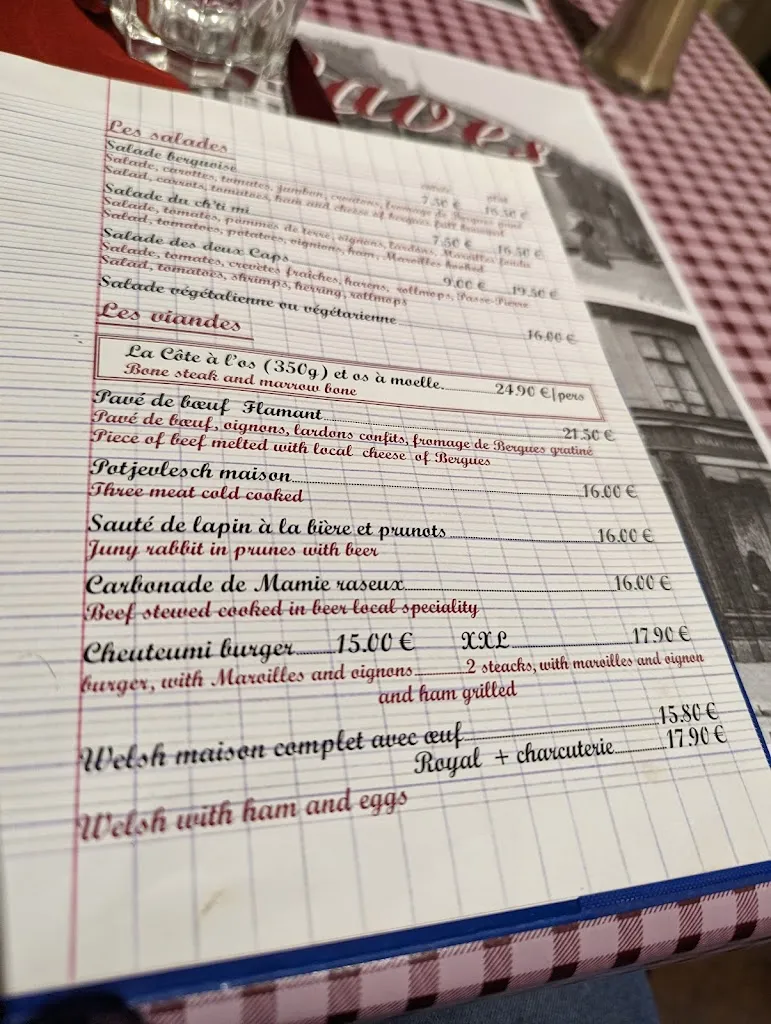 aves
Les salades
Salade berguoise
7.50 € 16.50 €
Salade, carottes, tomates, jambon, croutons, fromage de Bergues
Salad, carrots, tomatoes, ham and cheese of bergues
Salade du ch'ti mi
7.50 € 16.50 €
Salade, tomates, pommes de terre, oignons, lardons, Maroilles
Salad, tomatoes, potatoes, oignions, ham, Maroilles
Salade des deux Caps
9.00 € 19.50 €
Salade, tomates, crevètes fraîches, harens, rollmops, Passe-Pierre
Salad, tomatoes, shrimps, herring, rollmops
Salade végétalienne ou végétarienne 16.00 €
Les viandes
La Côte à l'os (350g) et os à moelle 24.90 €/pers
Bone steak and marrow bone
Pavé de bœuf Flamant 21.50 €
Pavé de bœuf, oignons, lardons confits, fromage de Bergues gratiné
Piece of beef melted with local cheese of Bergues
Potjevlesch maison 16.00 €
Three meat cold cooked
Sauté de lapin à la bière et prunots 16.00 €
Juny rabbit in prunes with beer
Carbonade de Mamie raseux 16.00 €
Beef stewed cooked in beer local speciality
Cheuteumi burger 15.00 € XXL 17.90 €
burger, with Maroilles and oignons 2 steacks, with maroilles and oignon
and ham grilled
Welsh maison complet avec œuf 15.80 €
Royal + charcuterie 17.90 €
Welsh with ham and eggs